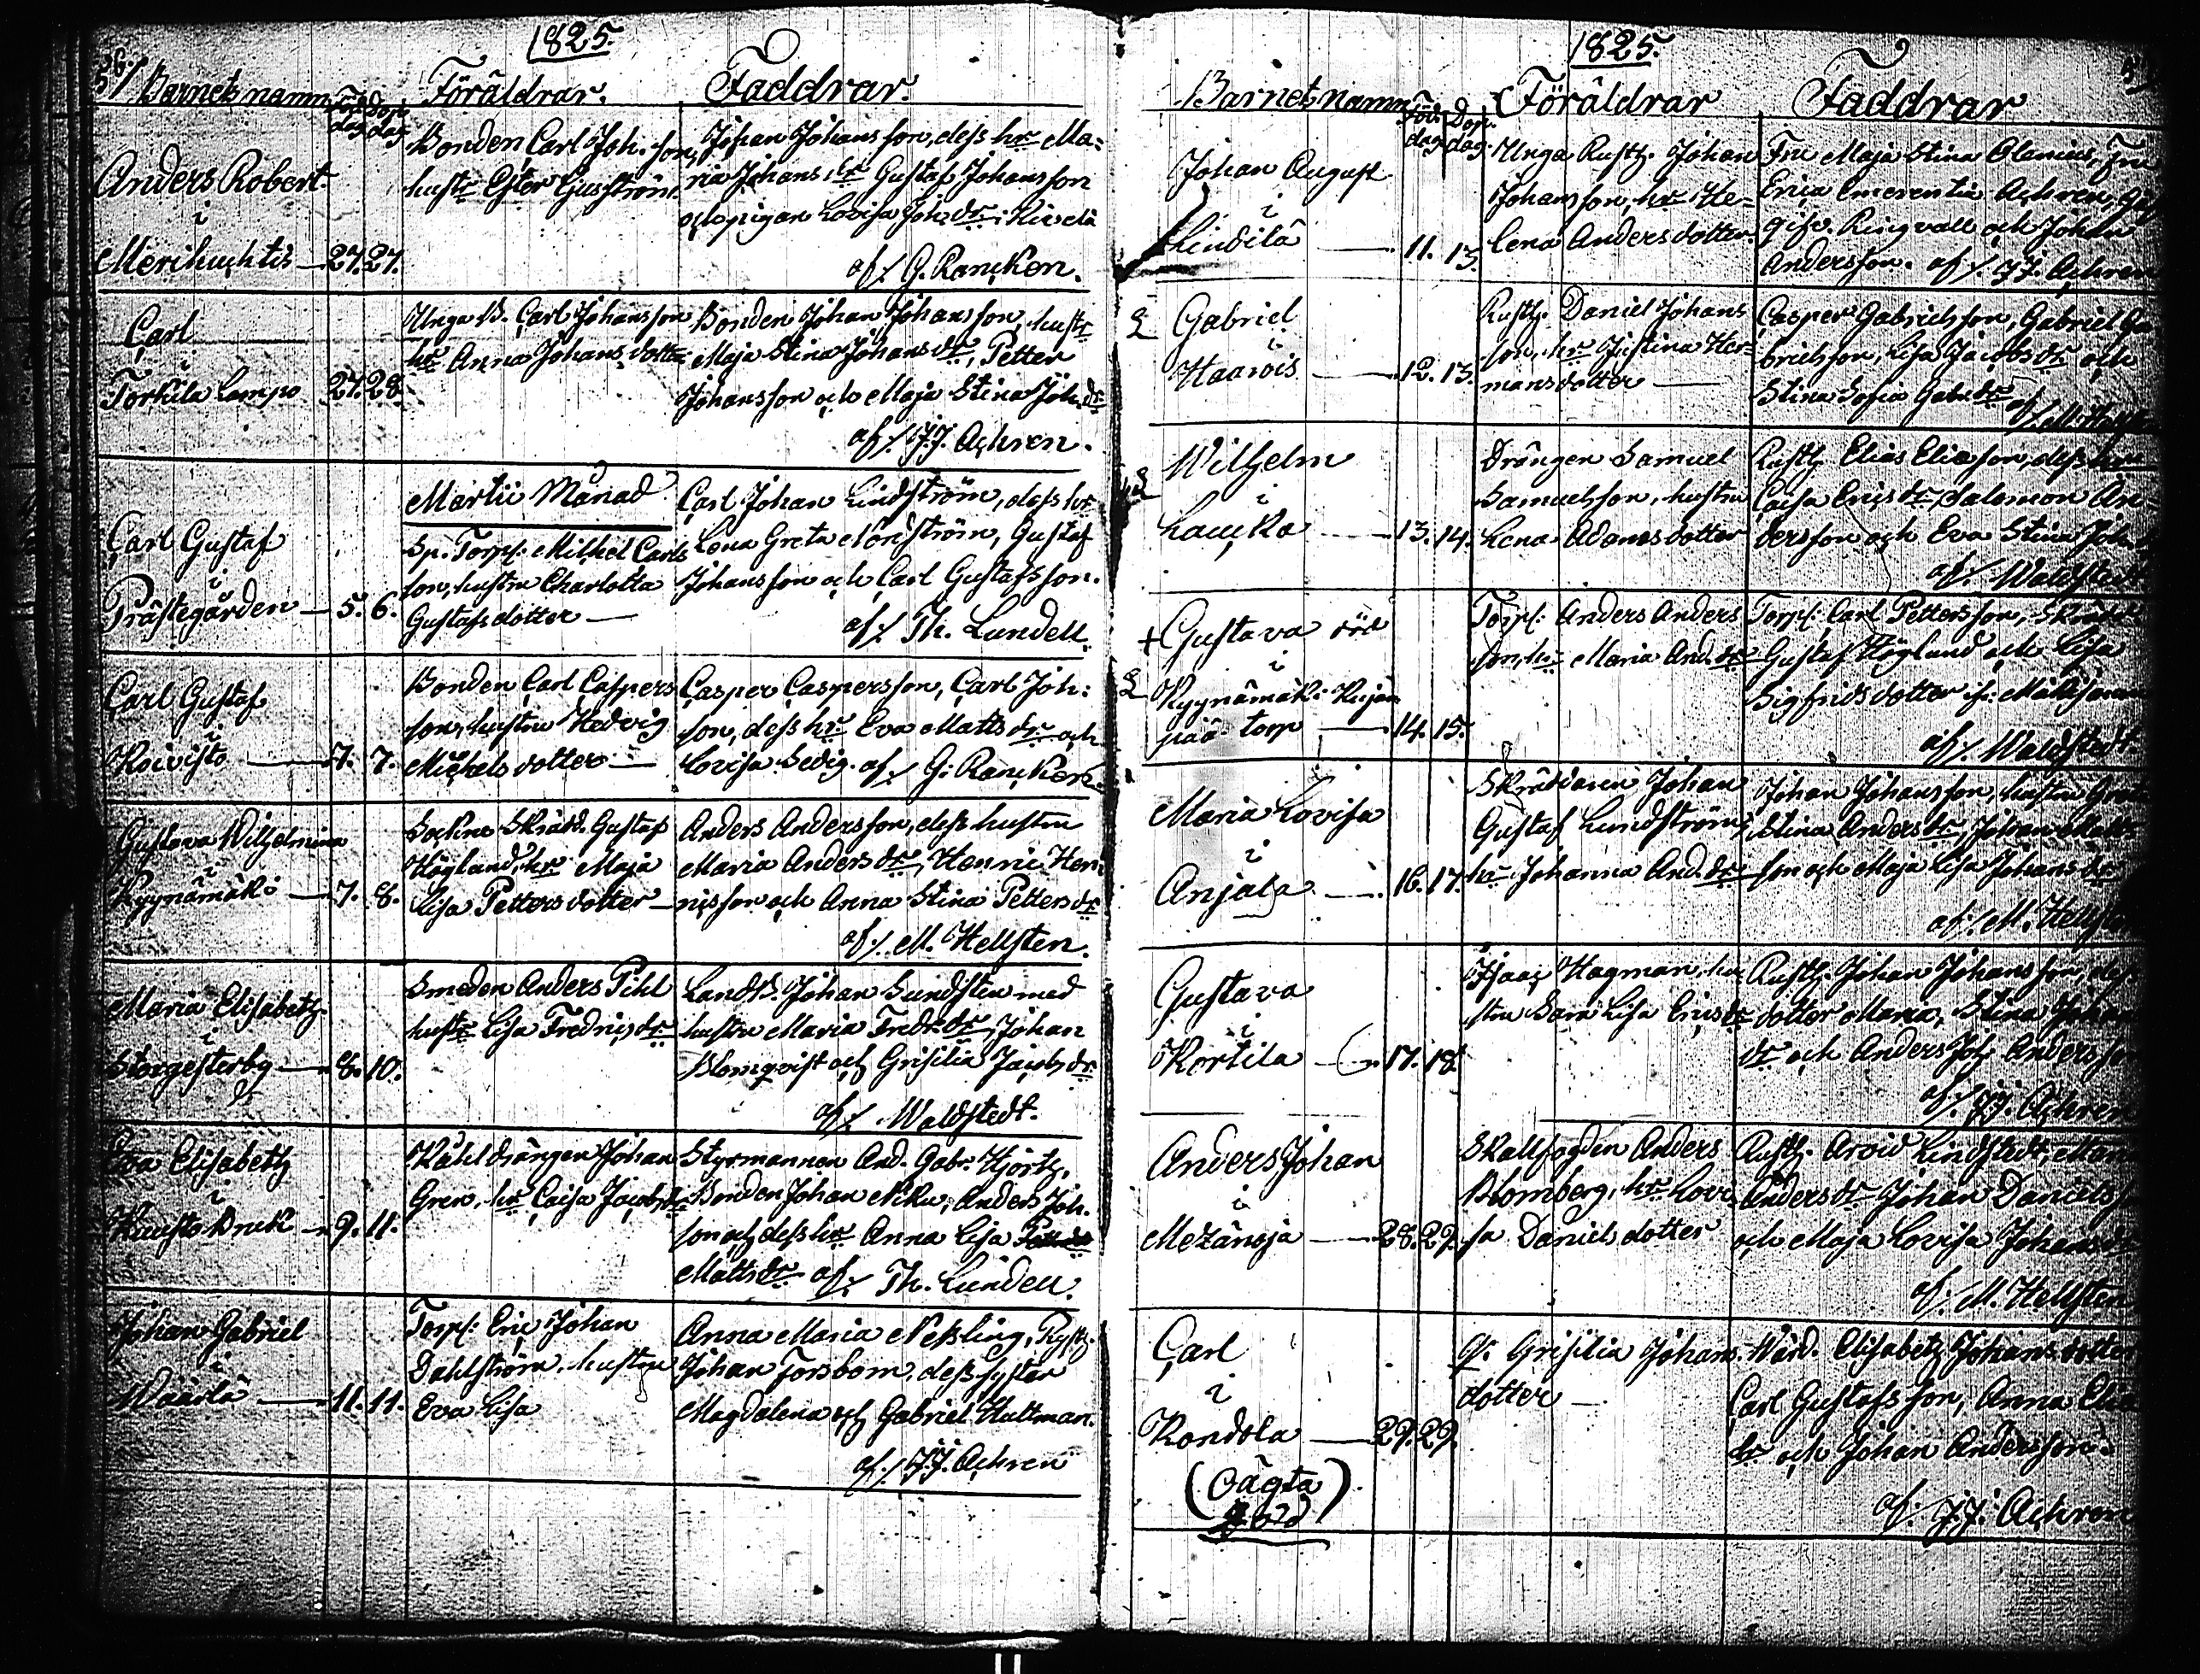 1825.
Barnets namn Föd. dag Dop dag Föräldrar. Faddrar.
Anders Robert
i
Merihuhtis — 27. 27.
Bonden Carl Joh. son,
hustr Ester Gusström.
Johan Johansson, dess hr Ma=
ria Johans dr Gustaf Johansson
och pigan Lovisa Joh. dr i Kivelä
af/. G. Rancken.
Carl
i
Torkila Lampo 27. 28.
Unga B. Carl Johansson
hr Anna Johans dotter
Bonden Johan Johansson, hustr
Maja Stina Johans dr, Petter
Johansson och Maja Stina Joh. dr
af/. J.J. Achren.
Martii Månad
Carl Gustaf
i
Prästegården — 5. 6.
Sp. Torp: Michel Carls
son, hustru Charlotta
Gustafsdotter —
Carl Johan Lindström, dess hr
Lena Greta Nordström, Gustaf
Johansson och Carl Gustafsson.
af/. Th. Lundell.
Carl Gustaf
i
Koivisto — 7. 7.
Bonden Carl Caspers
son, hustru Hedvig
Michels dotter —
Casper Caspersson, Carl Joh:
son, dess hr Eva Matts dr och
Lovisa Sedig. af/. G. Rancken.
Gustava Wilhelmina
i
Kyynämäki — 7. 8.
Sockne Skrädd. Gustaf
Höglund, hr Maja
Lisa Petters dotter —
Anders Andersson, dess hustru
Maria Anders dr, Henric Hen
ricsson och Anna Stina Petters dr
af/. M. Hellsten.
Maria Elisabeth
i
Storgesterby — 8. 10.
Smeden Anders Pihl
hustr Lisa Fredrics dr
Landb. Johan Sundsten med
hustru Maria Fredr. dr, Johan
Blomqvist och Grisilia Jacobs dr
af/. Waldstedt.
Eva Elisabeth
i
Kuusto Bruk — 9. 11.
Kåhldrängen Johan
Gren, hr Caisa Jacobs dr
Styrmannen And. Gabr. Hjorth,
Bonden Johan Niku, Anders Joh.
son och dess hr Anna Lisa
Matts dr af/. Th. Lundell.
Johan Gabriel
i
Waarla — 11. 11.
Torp: Eric Johan
Dahlström, hustru
Eva Lisa
Anna Maria Nessling, Rusth.
Johan Forsbom, dess syster
Magdalena och Gabriel Hultman.
af/. J.J. Achren
1825.
Barnets namn Föd. dag Dop. dag. Föräldrar Faddrar
Johan August
i
Lindilä — 11. 13.
Unga Rusth. Johan
Johansson, hr He=
lena Anders dotter
Fru Maja Stina Olenius, Fru
Erica Emerentia Achren,
gift. Ringvall och Johan
Andersson. af/. J.J. Achren
Gabriel
i
Haarois — 12. 13.
Rusth. Daniel Johans
son, hr Justina Her=
mansdotter —
Casper Gabrielsson, Gabriel Ga
brielsson, Lisa Jacobs dr och
Stina Sofia Gabr. dr
af/. M. Hellst
Wilhelm
i
Laucka — 13. 14.
Drängen Samuel
Samuelsson, hustru
Lena Adams dotter
Rusth. Elias Eliasson, dess hru
Caisa Erics dr Salomon An=
dersson och Eva Stina Joh
af/. Waldstedt
+ Gustava död
i
Kyynämäki Kujan
pää torp — 14. 15.
Torp: Anders Anders
son, hr Maria And. dr
Torp: Carl Pettersson, Skrädd.
Gustaf Höglund och Lisa
Sigfrids dotter
af/. Waldstedt
Maria Lovisa
i
Anjala — 16. 17.
Skräddaren Johan
Gustaf Lundström,
hr Johanna And. dr
Johan Johansson, hustru Greta
Stina Anders dr, Johan Matts
son och Maja Lisa Johans dr
af/. M. Hellsten
Gustava
i
Kortila — 17. 18.
Isaac Hagman, hu
stru Sara Lisa Erics dr
Rusth. Johan Johansson, dess
dotter Maria, Stina Johan
dr och Anders Joh. Andersson
af/. J.J. Achren
Anders Johan
i
Mezänoja — 28. 29.
Skallfogden Anders
Blomberg, hr Lovi
sa Daniels dotter
Rusth. Arvid Lindstedt, Maria
Anders dr Johan Danielsson
och Maja Lovisa Johans dr
af/. M. Hellsten
Carl
i
Kondola — 29. 29.
(Oägta
död)
Q. Grisilia Johans
dotter —
Wärd. Elisabeth Johans dotter
Carl Gustafsson, Anna Elia
dr och Johan Andersson.
af/. J.J. Achren